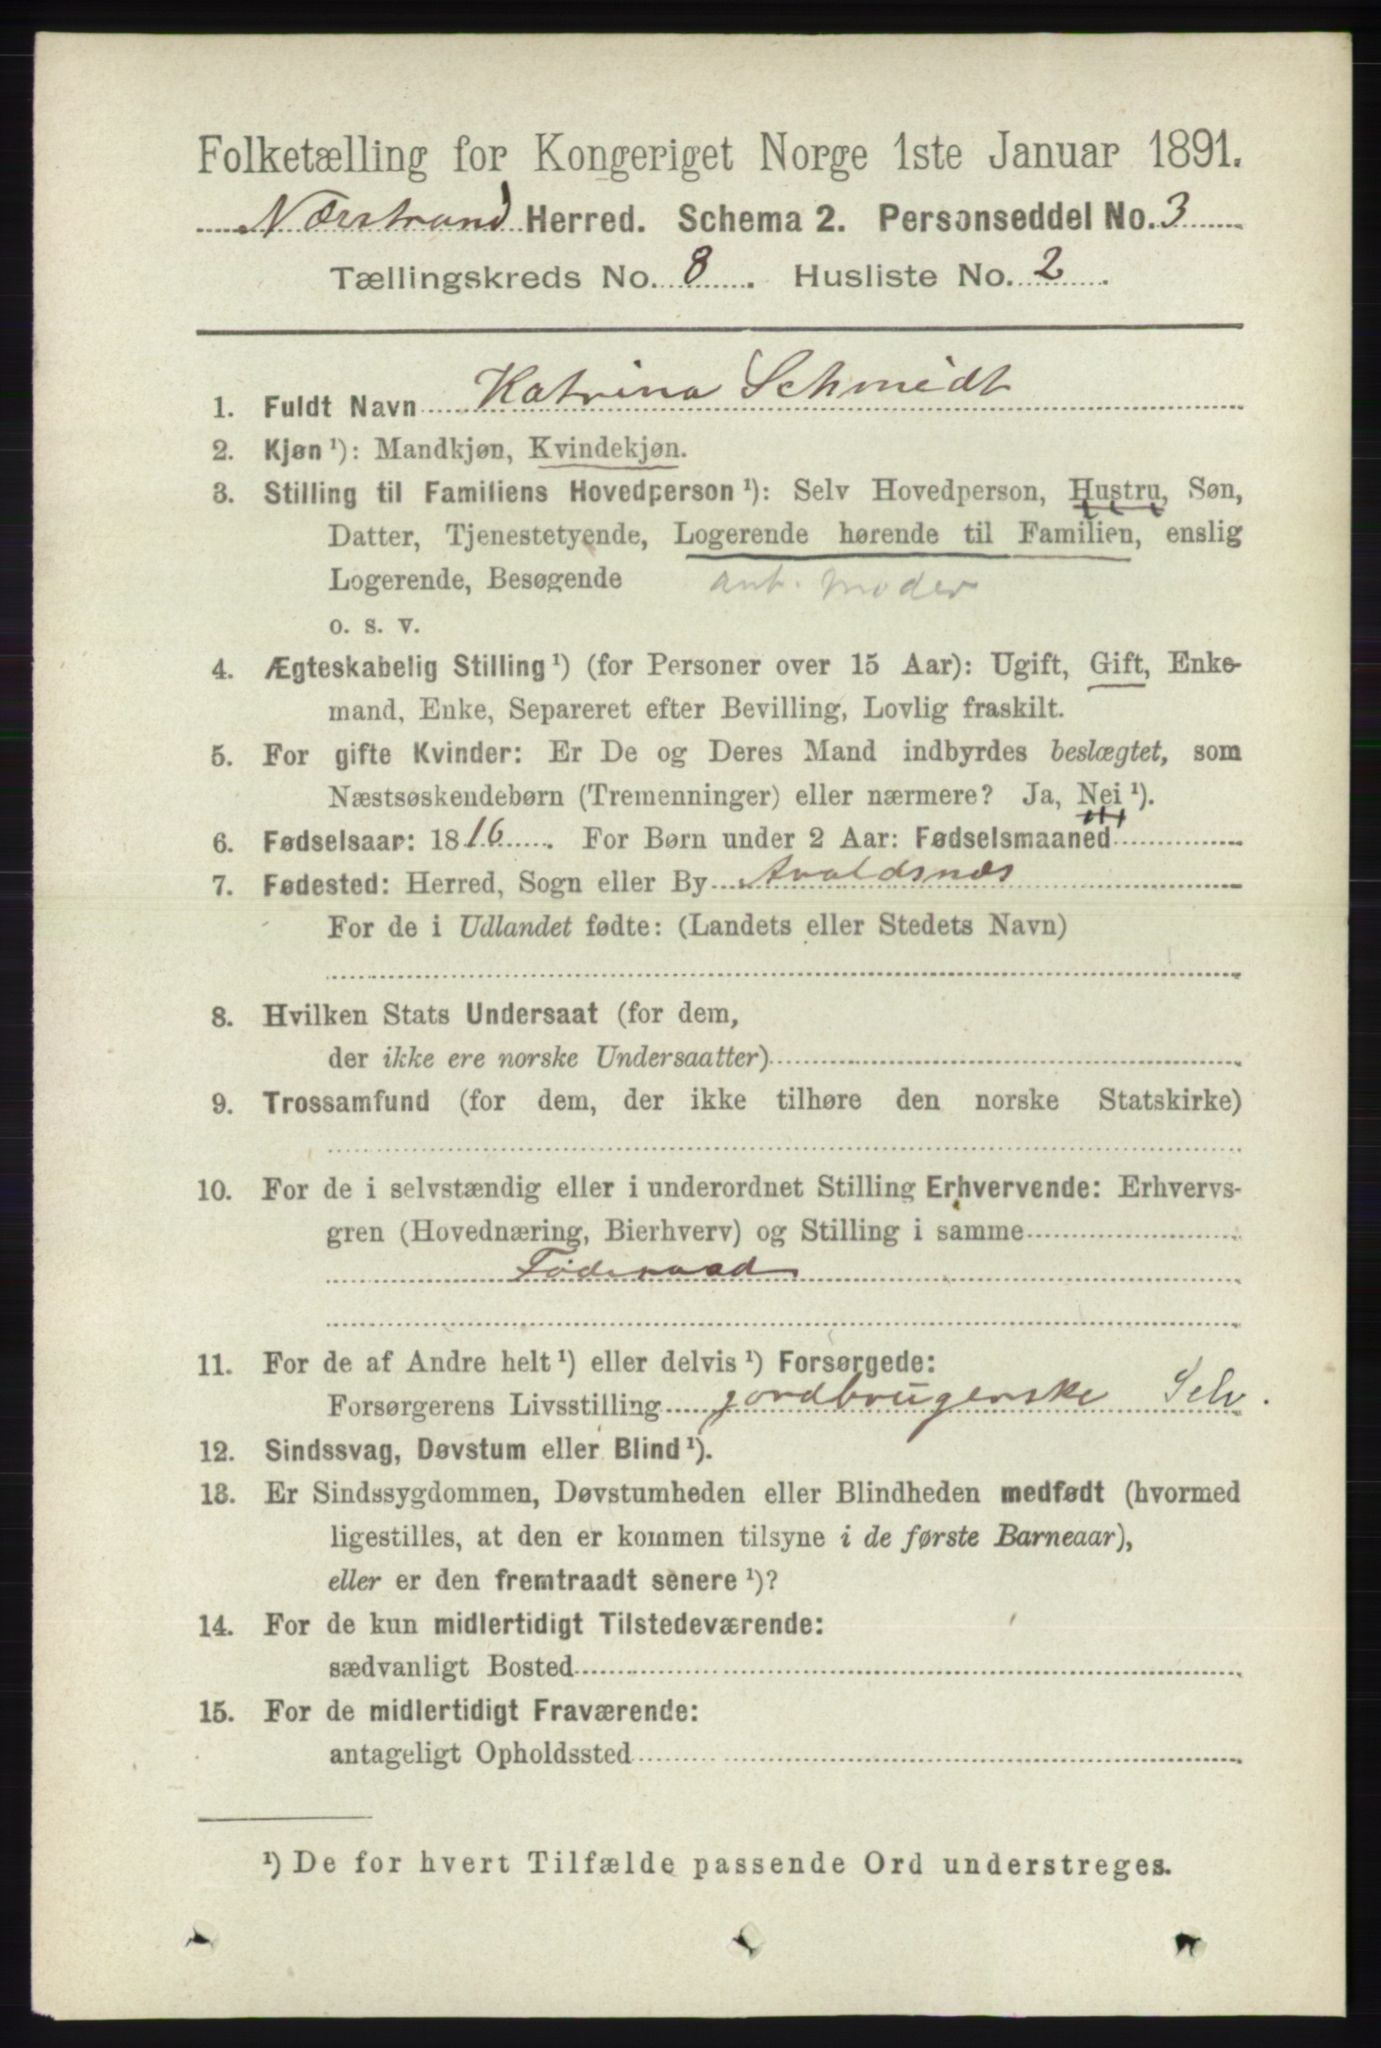 Folketælling for Kongeriget Norge 1ste Januar 1891.
Nærstrand Herred. Schema 2. Personseddel No. 3
Tællingskreds No. 8. Husliste No. 2.
1. Fuldt Navn Katrina Schmidt
2. Kjøn¹): Mandkjøn, Kvindekjøn.
3. Stilling til Familiens Hovedperson¹): Selv Hovedperson, Hustru, Søn,
Datter, Tjenestetyende, Logerende hørende til Familien, enslig
Logerende, Besøgende ant. Moder
o. s. v.
4. Ægteskabelig Stilling¹) (for Personer over 15 Aar): Ugift, Gift, Enke-
mand, Enke, Separeret efter Bevilling, Lovlig fraskilt.
5. For gifte Kvinder: Er De og Deres Mand indbyrdes beslægtet, som
Næstsøskendebørn (Tremenninger) eller nærmere? Ja, Nei¹).
6. Fødselsaar: 1816. For Børn under 2 Aar: Fødselsmaaned
7. Fødested: Herred, Sogn eller By Avaldsnæs
For de i Udlandet fødte: (Landets eller Stedets Navn)
8. Hvilken Stats Undersaat (for dem,
der ikke ere norske Undersaatter)
9. Trossamfund (for dem, der ikke tilhøre den norske Statskirke)
10. For de i selvstændig eller i underordnet Stilling Erhvervende: Erhvervs-
gren (Hovednæring, Bierhverv) og Stilling i samme
Föderaad
11. For de af Andre helt¹) eller delvis¹) Forsørgede:
Forsørgerens Livsstilling jordbrugerske Selv.
12. Sindssvag, Døvstum eller Blind¹).
13. Er Sindssygdommen, Døvstumheden eller Blindheden medfødt (hvormed
ligestilles, at den er kommen tilsyne i de første Barneaar),
eller er den fremtraadt senere¹)?
14. For de kun midlertidigt Tilstedeværende:
sædvanligt Bosted
15. For de midlertidigt Fraværende:
antageligt Opholdssted
¹) De for hvert Tilfælde passende Ord understreges.